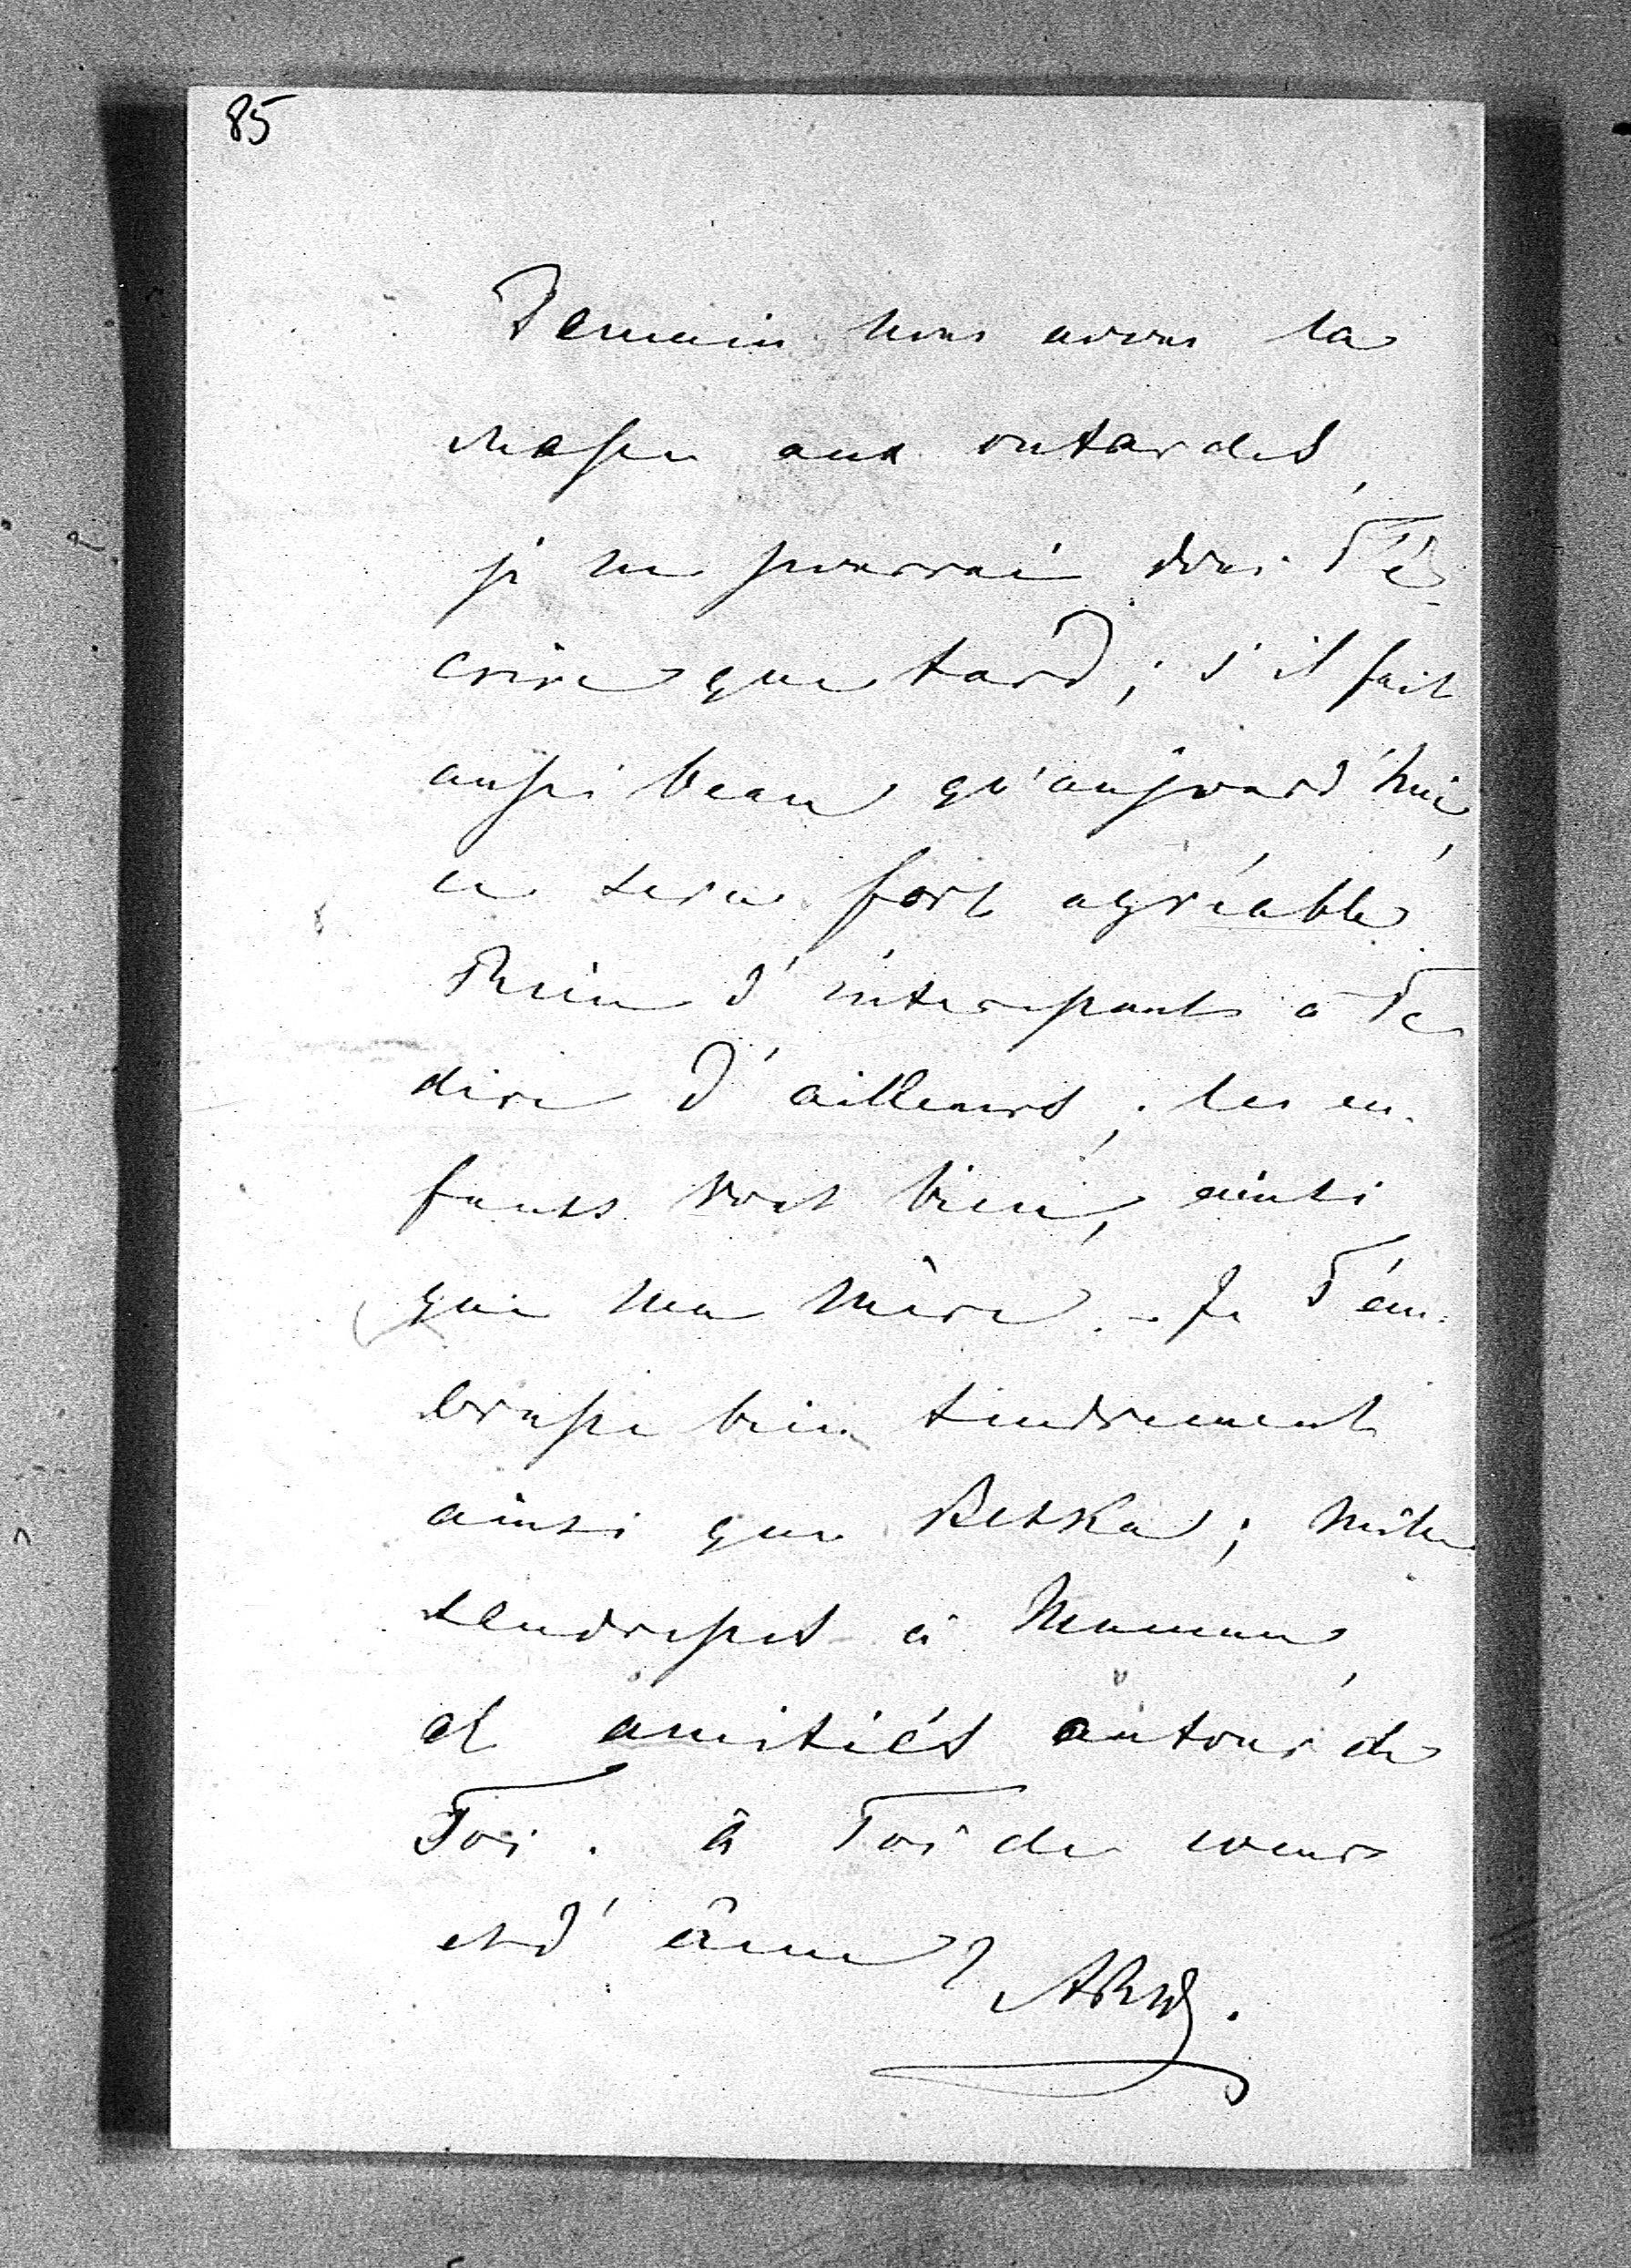 85
Demain nous avons la
chasse aux outardes,
je ne pourrai donc T'é-
crire que tard; s'il fait
aussi beau qu'aujourd'hui,
ce sera fort agréable.
Rien d'interessant à Te
dire d'ailleurs; les en-
fants vont bien, ainsi
que ma mère. - Je T'em-
brasse bien tendrement
ainsi que Betka; mille
tendresses à Maman,
et amitiés autour de
Toi. à Toi de coeur
et d'âme